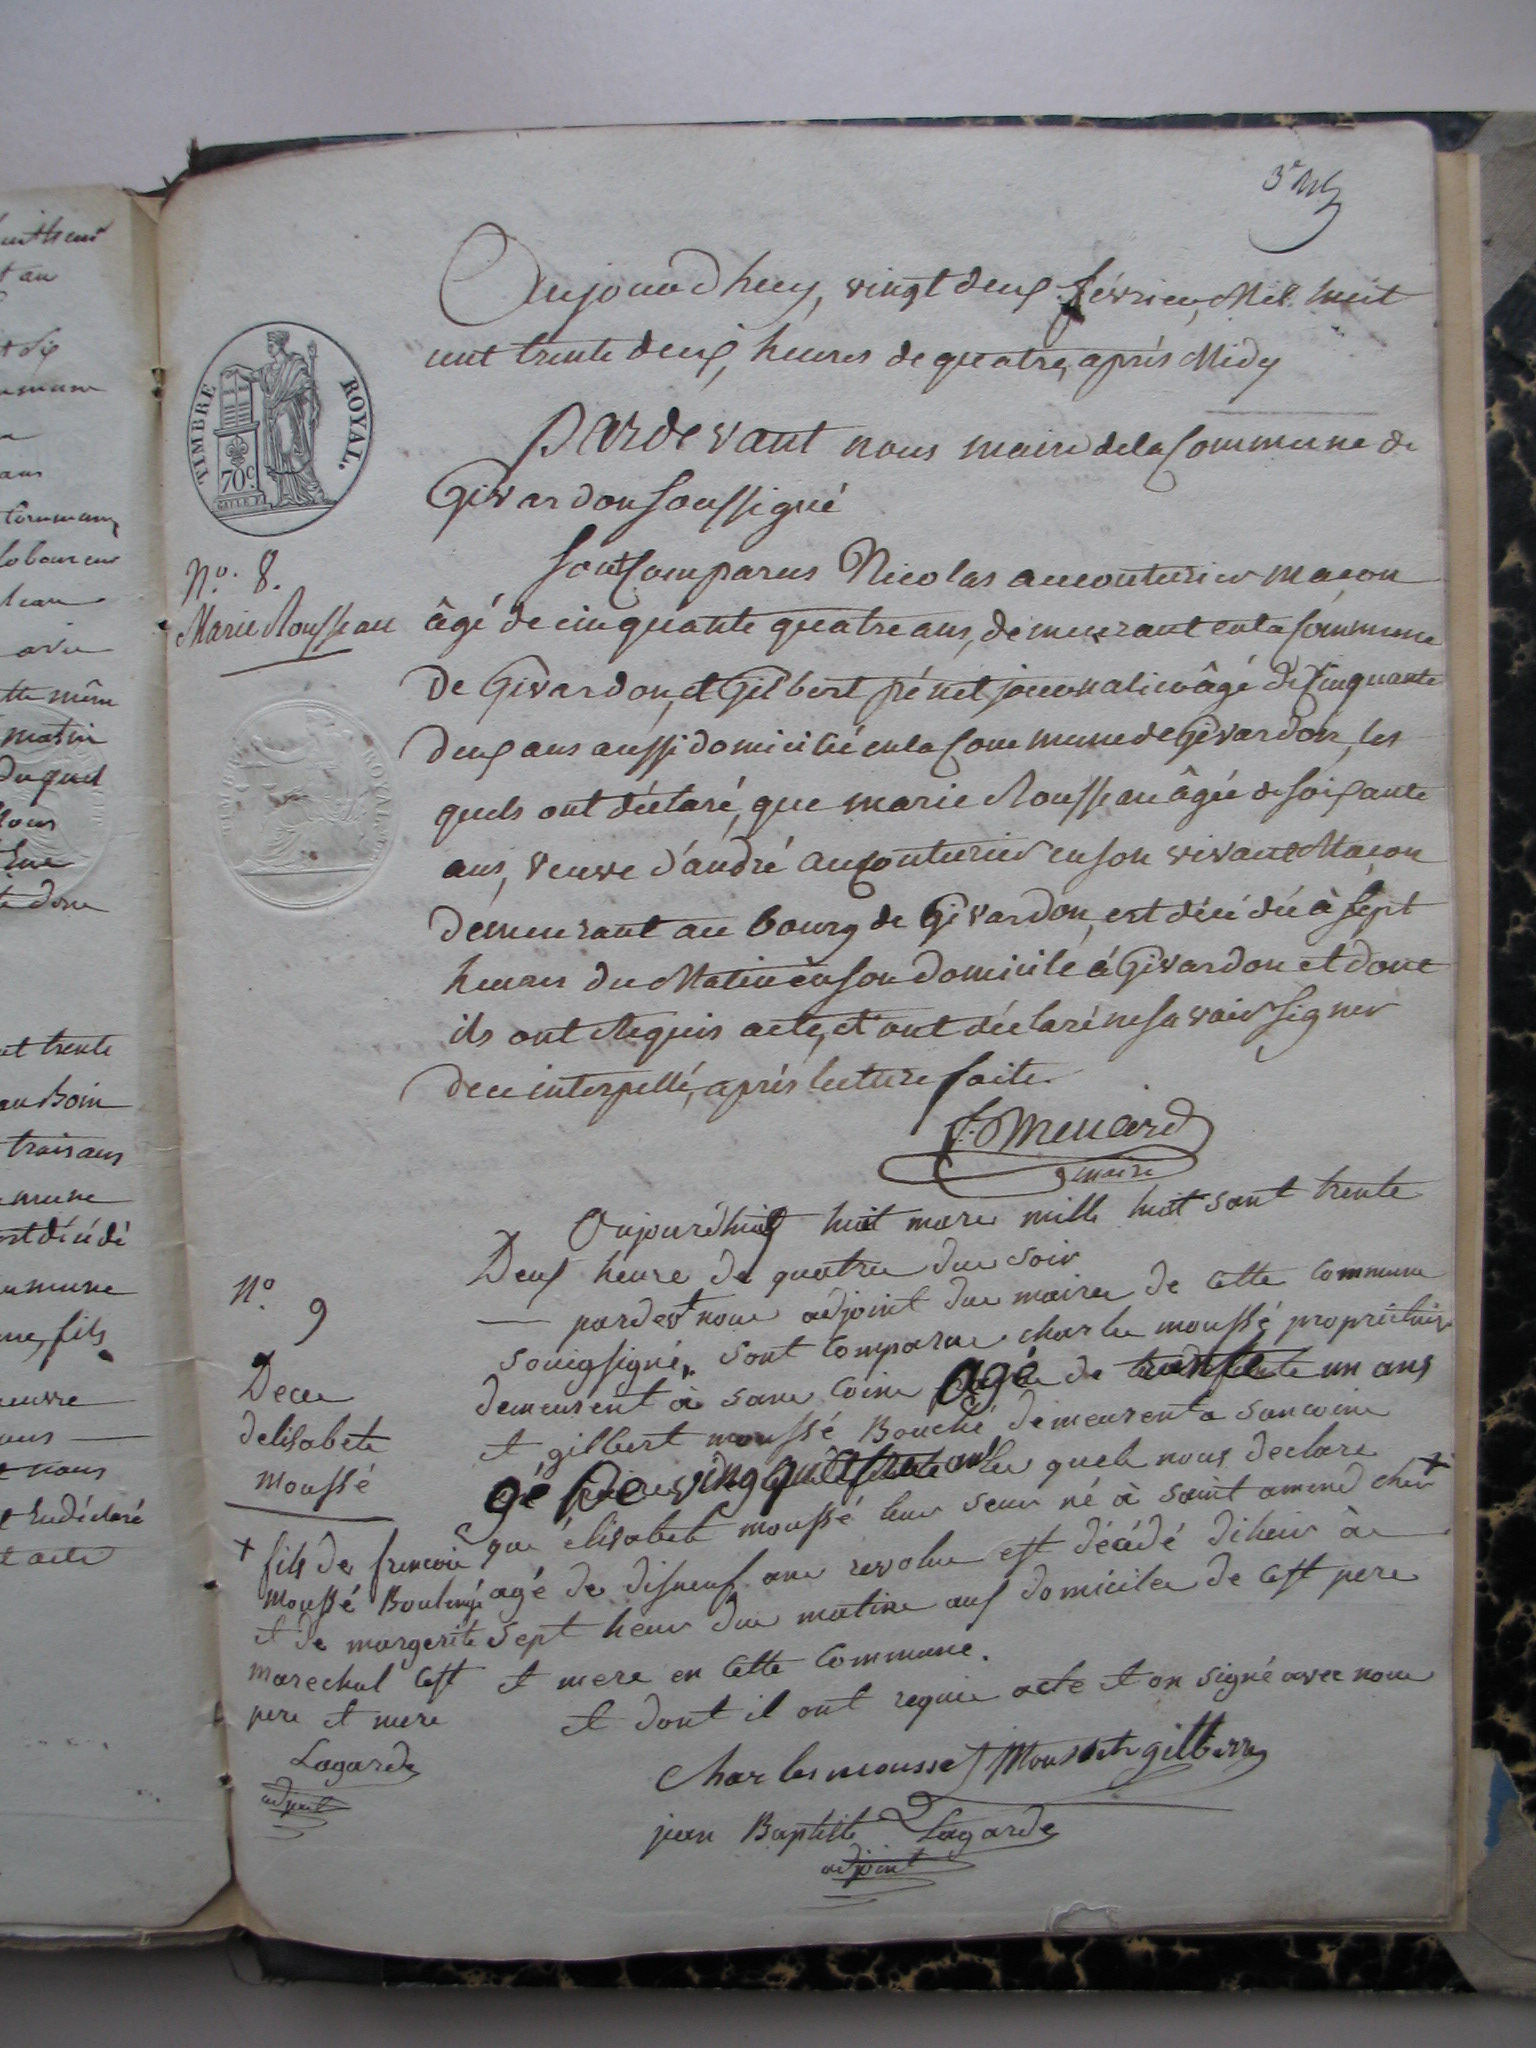 3e
TIMBRE ROYAL.
70c.
Aujourd huy, vingt deux février, Mil huit
cent trente deux, heures de quatre, après Midy
Pardevant nous maire de la Commune de
Givardon Soussigné
No. 8.
Marie Rousseau
Sont Comparus Nicolas aucouturier maçon
âgé de cinquante quatre ans, demeurant en la Commune
de Givardon, et Gilbert frénet journalier âgé de Cinquante
deux ans aussi domicilié en la Commune de Givardon, les
quels ont déclaré, que marie Rousseau âgée de soixante
ans, veuve d'andré aucouturier en son vivant Maçon
demeurant au bourg de Givardon, est décédée à sept
heures du Matin en son domicile à Givardon et dont
ils ont Requis acte, et ont déclaré ne savoir signer
de ce interpellé, après lecture faite.
Menard
maire
No
9
Decee
delisabete
moussé
Oujourdhuy huit mare mille huit sant trente
Deux heure de quatre due soir
pardevt noue adjoint due maire de Cette Commune
souigsigné, sont Comparue charle moussé propriétaire
demeurent à sane Coine agé de trente un ans
et gilbert moussé Bouché demeurent a sancoine
gé de ving quatre an les quele nous declare
que élisabet moussé leur seur né à saint amend cher +
agé de disneuf ane revolue est décédé diheir à
sept heur due matine aux domicilee de Cest pere
et mere en Cette Commune.
et dont il ont requie acte et on signé avec noue
+ fils de francoie
moussé Boulengé
et de margerite
marechal Cest
pere et mere
Lagarde
adjoint
Charles mousse Mousset gilbert
jean Baptiste Lagarde
adjoint